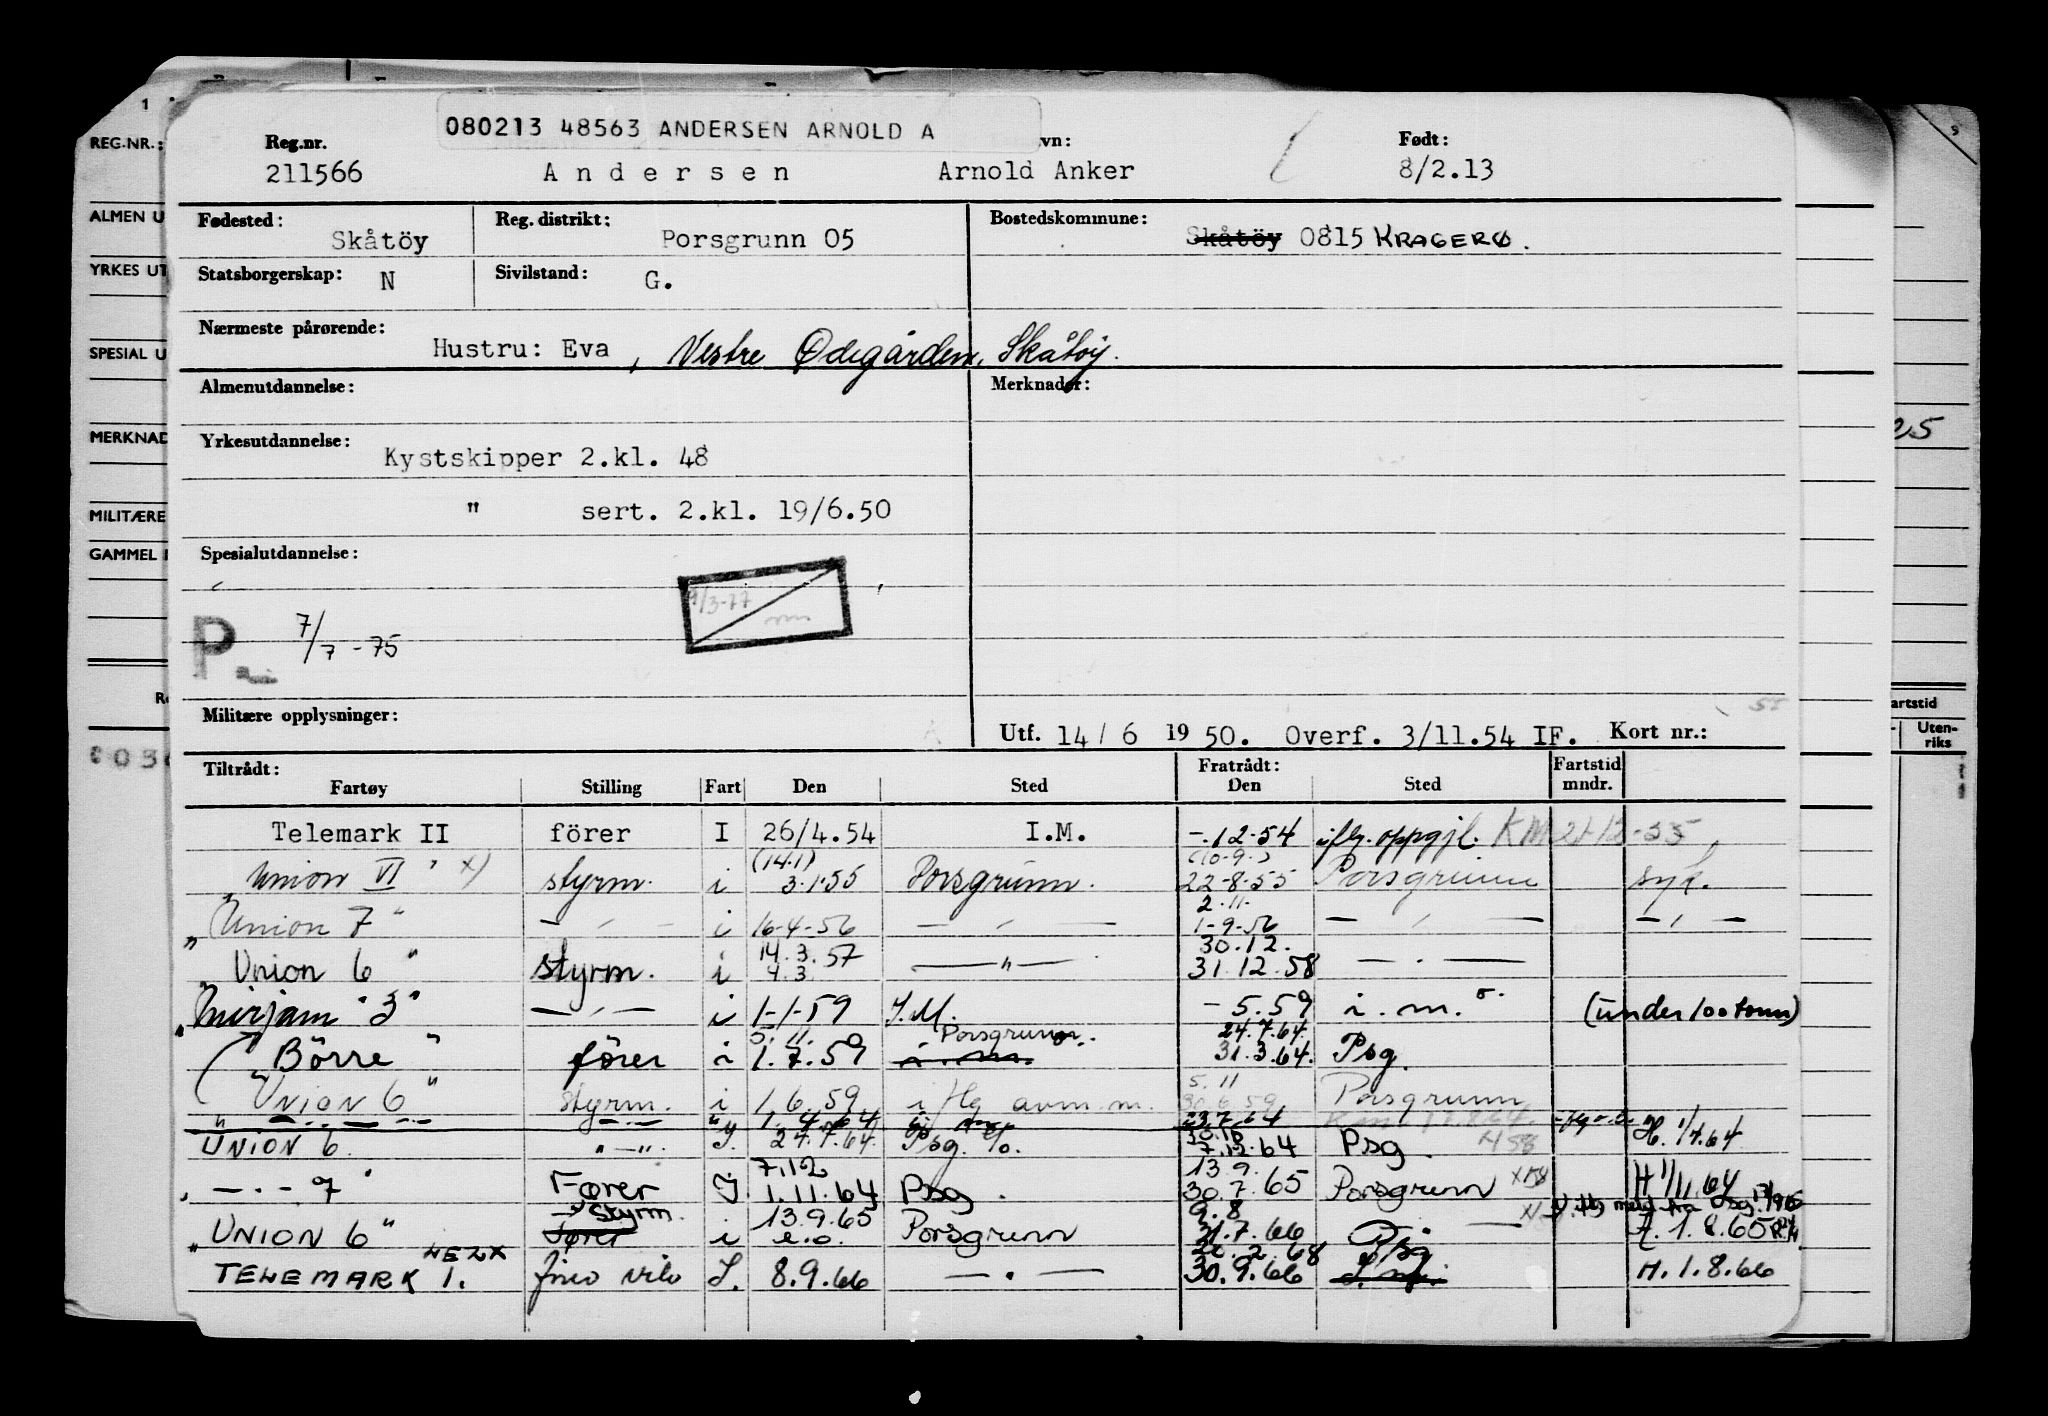 1
REG.NR.:
ALMEN U
YRKES UT
SPESIAL U
MERKNAD
MILITÆRE
GAMMEL
9
25
artstid
Uten-
riks
080213 48563 ANDERSEN ARNOLD A
Reg.nr. vn: Født:
211566 Andersen Arnold Anker 8/2.13
Fødested: Skåtöy Reg. distrikt: Porsgrunn 05 Bostedskommune: Skåtöy 0815 KRAGERØ.
Statsborgerskap: N Sivilstand: G.
Nærmeste pårørende: Hustru: Eva, Vestre Ødegården, Skåtøy.
Almenutdannelse: Merknader:
Yrkesutdannelse: Kystskipper 2.kl. 48
" sert. 2.kl. 19/6.50
Spesialutdannelse:
P 7/7-75
Militære opplysninger: Utf. 14/6 1950. Overf. 3/11.54 IF. Kort nr.:
Tiltrådt: Fratrådt: Fartstid
Fartøy Stilling Fart Den Sted Den Sted mndr.
Telemark II förer I 26/4.54 I.M. -.12-54 iflg. oppgjl.
(14.1) (10-9.)
"Union VI" x) styrm. i 3.1.55 Porsgrunn. 22-8-55 Porsgrunn syk.
2.11.
"Union 7" — " — i 16-4-56 — " — 1-9-56 — " — — " —
14.3. 30.12.
"Union 6" styrm. i 4.3. 57 — " — 31.12.58 — " —
"Mirjam 3" — " — i 1-1-59 I.M. - 5.59 i.m. (under 100 tonn)
5.11. Porsgrunn. 24.7.64.
"Børre" fører i 1.7.59 i.m. 31.3.64. Psg.
5.11
"UNION 6" styrm. i 1.6.59 i flg avm.m. 30.6.59 Porsgrunn
1.4.64 23.7.64 H. 1/4.64
UNION 6. " — " J. 24.7.64. Psg. 7.12.64 Psg.
7.12 13.9.
— " — 7" Fører J. 1.11.64 Psg. 30.7.65 Porsgrunn H 1/11.64
Styrm. 13.9.65 9.8
"UNION 6" Fører i e.o. Porsgrunn 31.7.66 Psg H. 1.8.65
20.2.68
TELEMARK 1. J. 8.9.66 — " — 30.9.66 H. 1.8.66